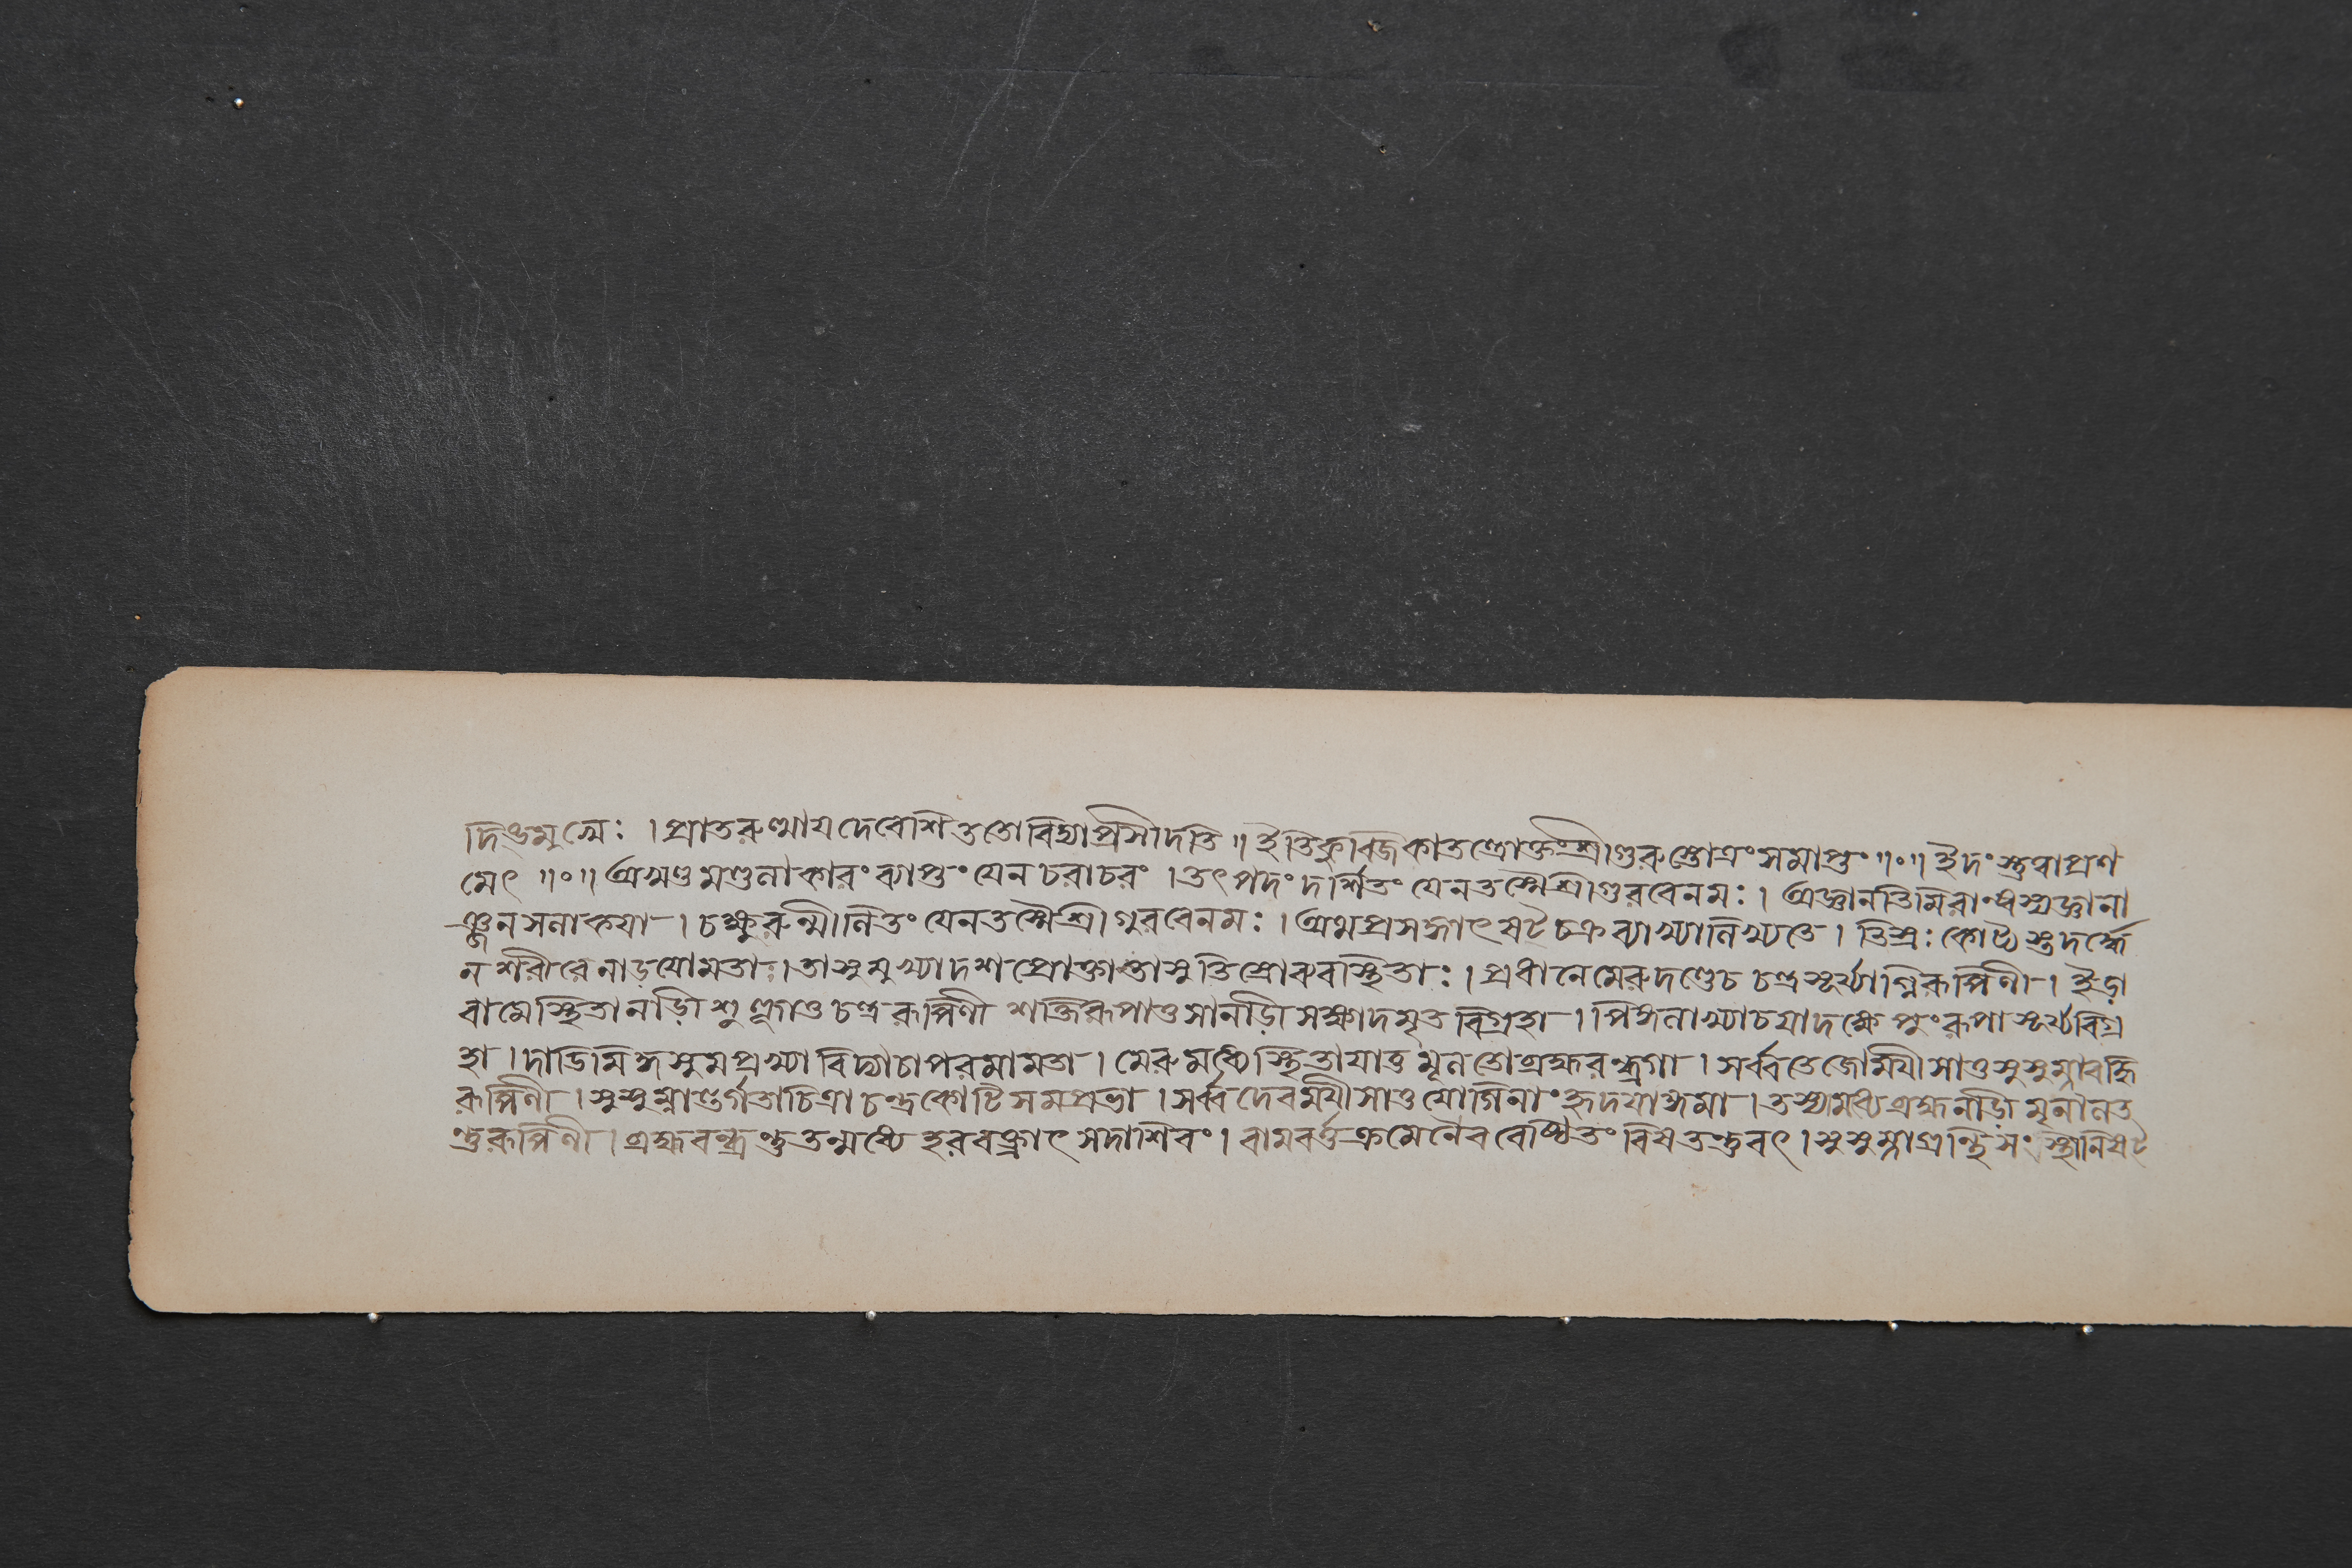 দিঙমুখ্যৈঃ । প্রাতরুত্থায দেবেশি ততো বিদ্যা প্রসীদতি ॥ ইতি কুব্জিকাতন্ত্রোক্তং শ্রীগুরুস্তোত্রং সমাপ্তং ॥০॥ ইদং স্তুত্বা প্রণ
মেৎ ॥০॥ অখণ্ডমণ্ডলাকারং ব্যাপ্তং যেন চরাচরং । তৎপদং দর্শিতং যেন তস্মৈ শ্রীগুরবে নমঃ । অজ্ঞানতিমিরান্ধস্য জ্ঞানা
ঞ্জনসলাকযা । চক্ষুরুন্মীলিতং যেন তস্মৈ শ্রীগুরবে নমঃ । অথ প্রসঙ্গাৎ ষট্চক্রব্যাখ্যা লিখ্যতে । তিস্রঃ কোট্যস্তদর্দ্ধে
ন শরীরে নাড়যো মতাঃ । তাসু মুখ্যা দশ প্রোক্তাস্তাসু তিস্রো ব্যবস্থিতাঃ । প্রধানে মেরুদণ্ডে চ চন্দ্রসূর্য্যাগ্নিরূপিণী । ইড়া
বামে স্থিতা নাড়ী শুক্লা তু চন্দ্ররূপিণী শক্তিরূপা তু সা নাড়ী সাক্ষাদমৃতবিগ্রহা । পিঙ্গলাখ্যা চ যা দক্ষে পুংরূপা সূর্য্যবিগ্র
হা । দাডিমিঙ্গসুমপ্রখ্যা বিদ্যাচাপরমামতা । মেরুমধ্যে স্থিতা যা তু মূলতো ব্রহ্মরন্ধ্রগা । সর্ব্বতেজোময়ী সা তু সুসুম্না বহ্নি
রূপিণী । সুসুম্নান্তর্গতা চিত্রা চন্দ্রকোটিসমপ্রভা । সর্ব্বদেবময়ী সা তু যোগিনাং হৃদযাঙ্গমা । তস্যা মধ্যে ব্রহ্মনাড়ী মৃণালত
ন্তুরূপিণী । ব্রহ্মরন্ধ্রন্তু তন্মধ্যে হরবক্ত্রাৎ সদাশিবং । বামবর্ত্তক্রমেনৈব বেষ্টিতং বিষতন্তুবৎ । সুসুম্নাগ্রন্থিসংস্থানি ষট